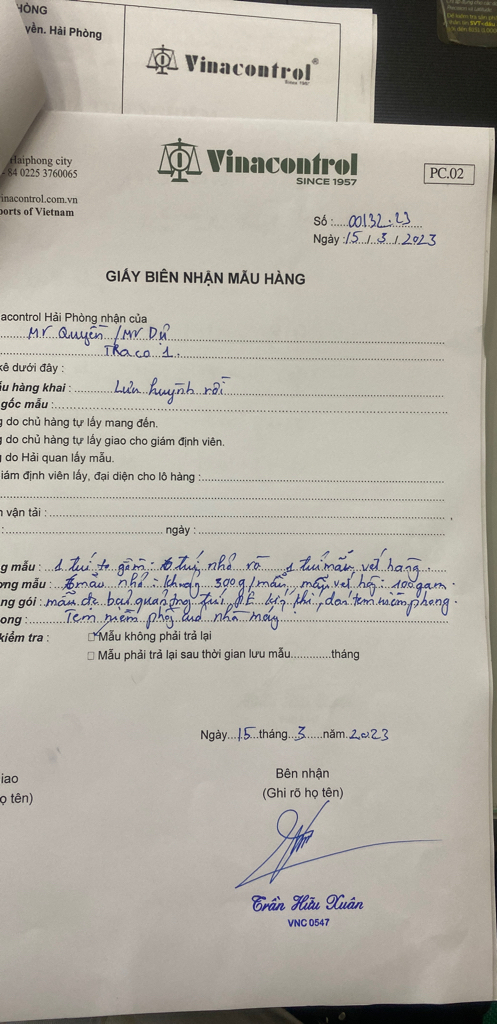 HÒNG
yền. Hải Phòng
Vinacontrol®
Since 1957
Haiphong city
- 84 0225 3760065
inacontrol.com.vn
ports of Vietnam
Vinacontrol
SINCE 1957
PC.02
Số : 00132.23
Ngày : 15 / 3 / 2023
GIẤY BIÊN NHẬN MẪU HÀNG
acontrol Hải Phòng nhận của
Mr Quyền / Mr Dự
Traco 1.
kê dưới đây :
ẫu hàng khai : Lưu huỳnh rời
gốc mẫu :
g do chủ hàng tự lấy mang đến.
g do chủ hàng tự lấy giao cho giám định viên.
g do Hải quan lấy mẫu.
iám định viên lấy, đại diện cho lô hàng :
n vận tải :
: ngày :
g mẫu : 1 túi to gồm: 6 túi nhỏ và 1 túi mẫu vét hàng.
ợng mẫu : 6 mẫu nhỏ: khoảng 300g/mẫu, mẫu vét hg: 100gam.
ng gói : mẫu đc bảo quản tng túi PE kín khí, dán tem niêm phong.
ong : Tem niêm phong của nhà máy
kiểm tra : Mẫu không phải trả lại
Mẫu phải trả lại sau thời gian lưu mẫu............tháng
Ngày 15 tháng 3 năm 2023
iao
ọ tên)
Bên nhận
(Ghi rõ họ tên)
Trần Hữu Xuân
VNC 0547